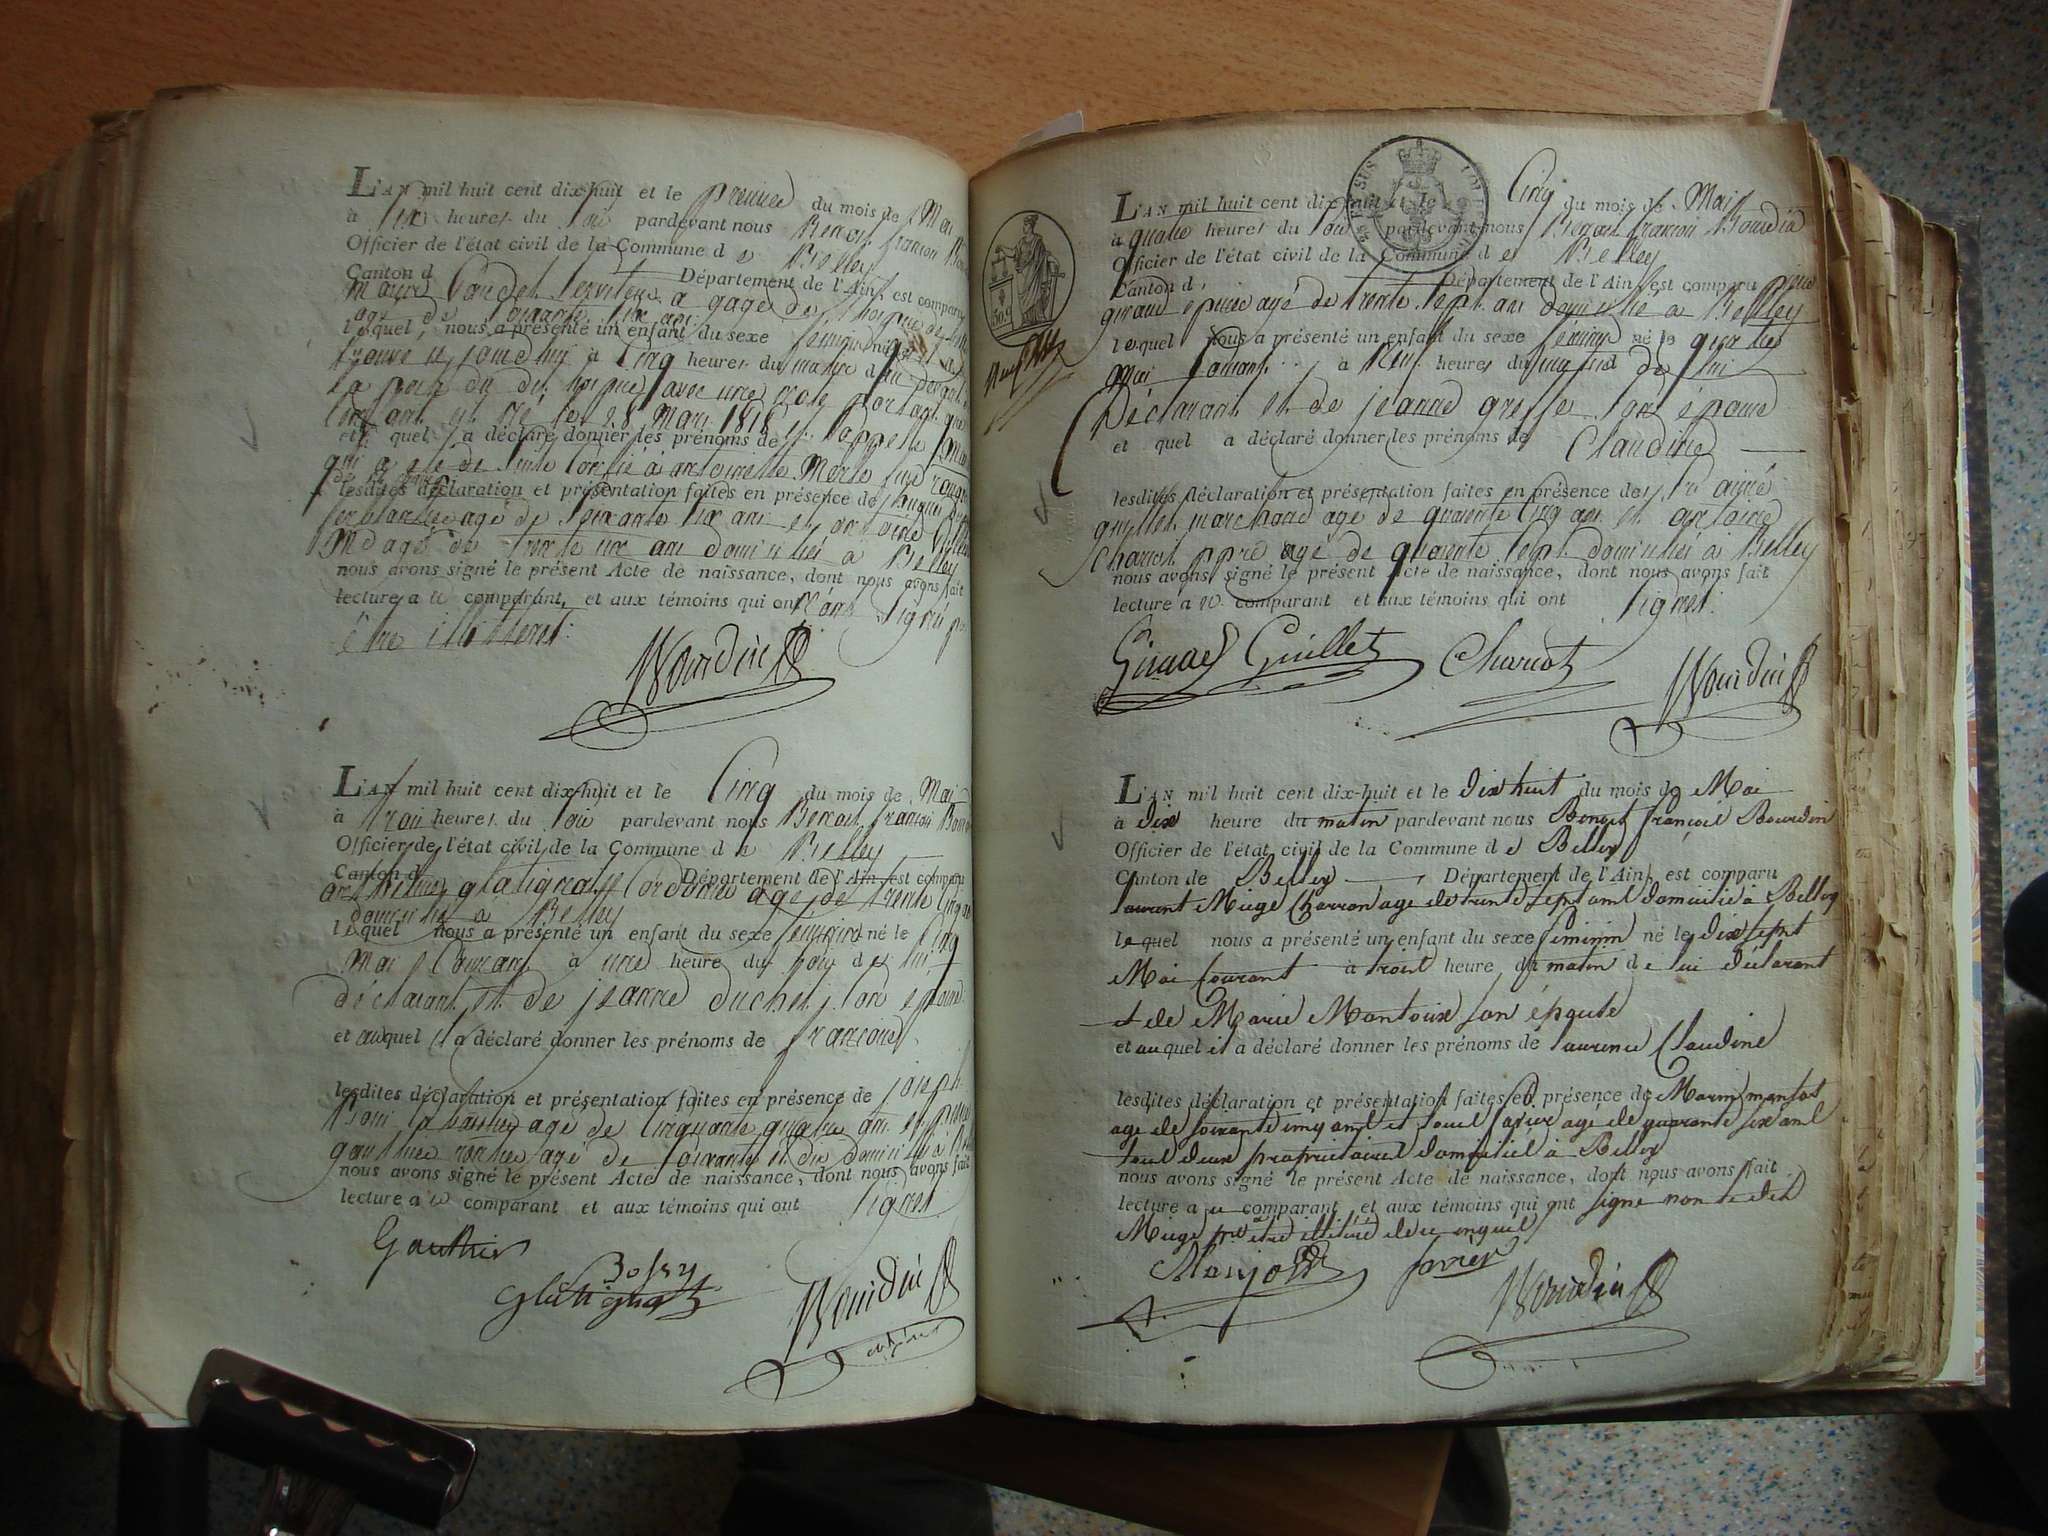 L'AN mil huit cent dix-huit et le premier du mois de Mai
à six heures du soir pardevant nous Benoit françois
Officier de l'état civil de la Commune de Belley
Canton d Département de l'Ain, est comparu
Marie serviteur a gage de l'hospice de
age de quarante six ans
lequel, nous a présenté un enfant du sexe féminin
trouvé ce jourd'hui à Cinq heures du matin
la porte du dit hospice avec une note portant que
l'enfant est né le 28 Mars 1818
et quel a déclaré donner les prénoms de
qui a été de suite confié à antoinette
lesdites déclaration et présentation faites en présence de
ferblantier agé de soixante six ans et antoine
Md agé de trente six ans domiciliés à Belley
nous avons signé le présent Acte de naissance, dont nous avons fait
lecture a ce comparant, et aux témoins qui ont signé
être illitérés.
Bourdin
L'AN mil huit cent dix-huit et le Cinq du mois de Mai
à trois heures du soir pardevant nous Benoit françois
Officier de l'état civil de la Commune de Belley
Canton d Département de l'Ain, est comparu
Cordonnier agé de trente Cinq ans
domicilié a Belley
lequel nous a présenté un enfant du sexe féminin né le Cinq
Mai Courant à une heure du soir de lui
déclarant et de jeanne duchet son épouse
et auquel il a déclaré donner les prénoms de françoise
lesdites déclaration et présentation faites en présence de joseph
agé de Cinquante quatre ans et
gauthier rentier agé de soixante et dix domiciliés à
nous avons signé le présent Acte de naissance, dont nous avons fait
lecture a ce comparant et aux témoins qui ont signés
Gauthier
Bossy
Bourdin
L'AN mil huit cent dix-huit et le Cinq du mois de Mai
à quatre heures du soir pardevant nous Benoit françois Bourdin
Officier de l'état civil de la Commune de Belley
Canton d Département de l'Ain, est comparu
giraud épicier agé de trente sept ans domicilié a Belley
lequel nous a présenté un enfant du sexe féminin né le quatre
Mai Courant à Neuf heures du matin de lui
Déclarant et de jeanne son épouse
et quel a déclaré donner les prénoms de Claudine
lesdites déclaration et présentation faites en présence de aimé
guillet marchand agé de quarante Cinq ans et antoine
Charcot ppre agé de quarante sept domiciliés à Belley
nous avons signé le présent Acte de naissance, dont nous avons fait
lecture a ce comparant et aux témoins qui ont signés.
Giraud Guillet Charcot Bourdin
L'AN mil huit cent dix-huit et le dix huit du mois de Mai
à dix heure du matin pardevant nous Benoit françois Bourdin
Officier de l'état civil de la Commune de Belley
Canton de Belley Département de l'Ain, est comparu
laurent Miege Charron age de trente sept ans domicilié à Belley
lequel nous a présenté un enfant du sexe féminin né le dix sept
Mai Courant à trois heure du matin de lui déclarant
et de Marie Montoux son épouse
et auquel il a déclaré donner les prénoms de laurence Claudine
lesdites déclaration et présentation faites en présence de Marin
age de soixante cinq ans et age de quarante six ans
tous deux propriétaires domiciliés à Belley
nous avons signé le présent Acte de naissance, dont nous avons fait
lecture a ce comparant et aux témoins qui ont signé non le dit
Miege pr être illitéré de ce enquis
Bourdin